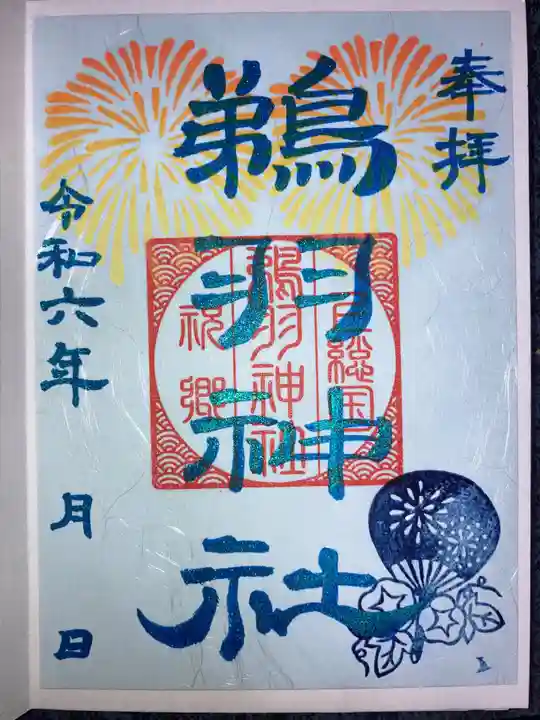 奉拝
鵜羽神社
下総国
鵜羽神社
祝郷
令和六年 月 日